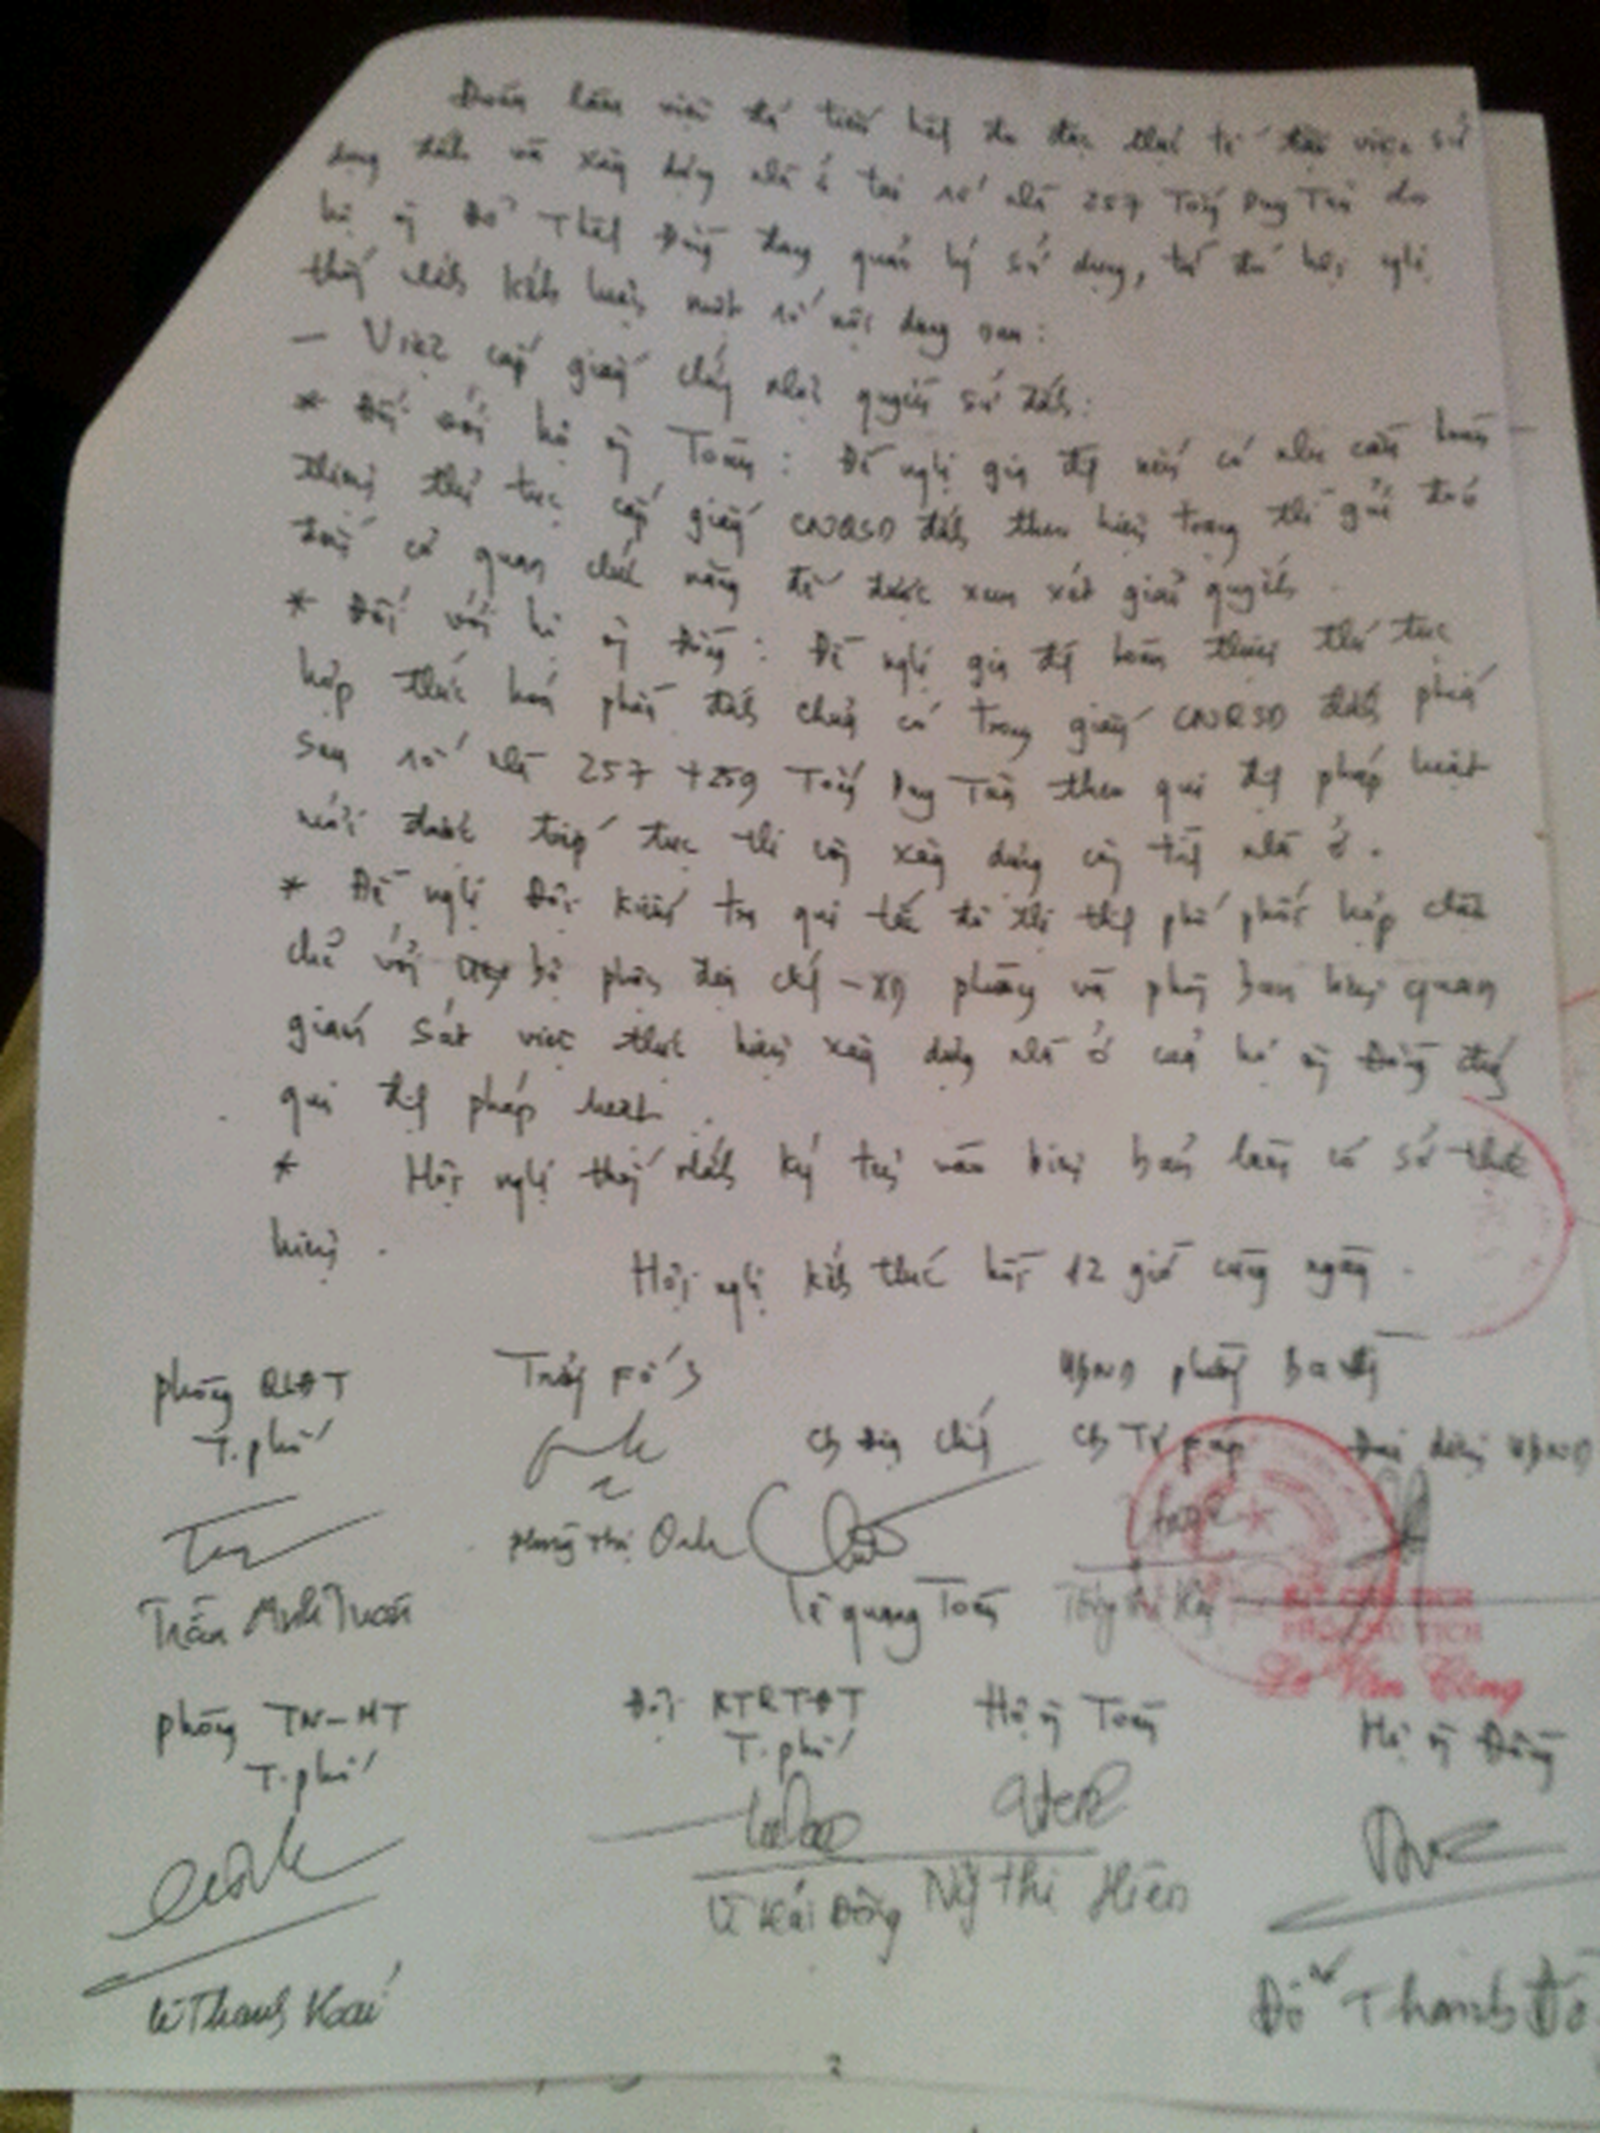 Đoàn làm việc đã tiến hành đo đạc thực tế toàn việc sử
dụng đất và xây dựng nhà ở tại số nhà 257 Tống Duy Tân do
hộ ô Đỗ Thành Đồng đang quản lý sử dụng, từ đó hội nghị
thống nhất kết luận một số nội dung sau:
- Việc cấp giấy chứng nhận quyền sử đất:
* Đối với hộ ô Toàn: Đề nghị gia đình nếu có nhu cầu hoàn
thiện thủ tục cấp giấy CNQSD đất theo hiện trạng thì gửi đơn
đến cơ quan chức năng để được xem xét giải quyết.
* Đối với hộ ô Đồng: Đề nghị gia đình hoàn thiện thủ tục
hợp thức hoá phần đất chưa có trong giấy CNQSD đất phía
sau số nhà 257+259 Tống Duy Tân theo qui định pháp luật
mới được tiếp tục thi công xây dựng công trình nhà ở.
* Đề nghị Đội kiểm tra qui tắc đô thị thành phố phối hợp chặt
chẽ với bộ phận địa chính - XD phường và phòng ban liên quan
giám sát việc thực hiện xây dựng nhà ở của hộ ô Đồng đúng
qui định pháp luật.
* Hội nghị thống nhất ký tên vào biên bản làm cơ sở thực
hiện.
Hội nghị kết thúc hồi 12 giờ cùng ngày.
Phòng QLĐT Trưởng Fố 3 UBND phường Ba Đình
T.phố CB Địa chính CB Tư pháp Đại diện UBND
Phùng Thị Oanh
Trần Anh Tuấn Lê Quang Toàn
PHÓ CHỦ TỊCH
Lê Văn Công
Phòng TN-MT Đội KTQTĐT Hộ ô Toàn Hộ ô Đồng
T.phố T.phố
Thị Hiền
Lê Thanh Đỗ Thành Đồ
2